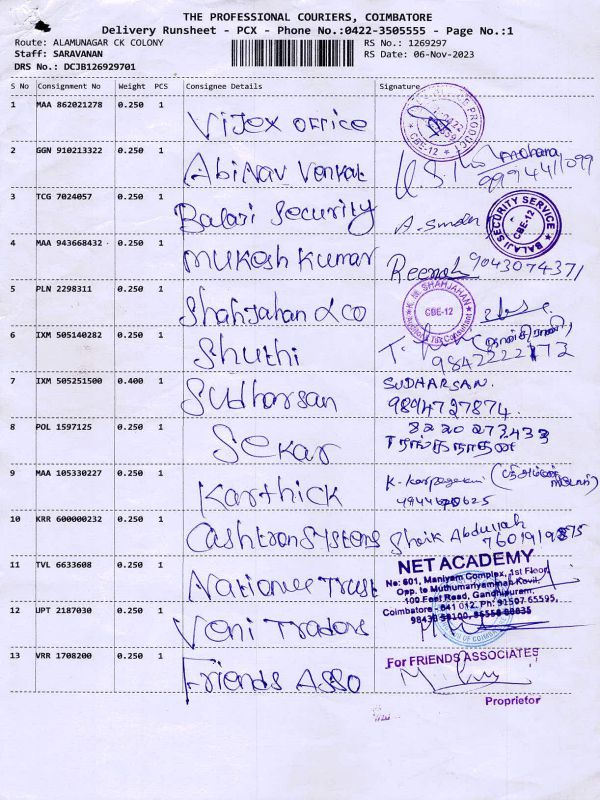 THE PROFESSIONAL COURIERS, COIMBATORE
Delivery Runsheet - PCX - Phone No.:0422-3505555 - Page No.:1
Route: ALAMUNAGAR CK COLONY
RS No.: 1269297
Staff: SARAVANAN
RS Date: 06-Nov-2023
DRS No.: DCJB126929701
S No Consignment No Weight PCS Consignee Details Signature
1 MAA 862021278 0.250 1 Vijex office
CBE-12
2 GGN 910213322 0.250 1 Abinav Venkat
9994411099
3 TCG 7024057 0.250 1 Balaji Security
BALAJI SECURITY SERVICE CBE-12
4 MAA 943668432 0.250 1 Mukesh Kumar
9043074371
5 PLN 2298311 0.250 1 Shahjahan & co
K. M. SHAHJAHAN CBE-12
6 IXM 505140282 0.250 1 Shuthi
7 IXM 505251500 0.400 1 Sudharsan SUDHARSAN.
9894727874.
8 POL 1597125 0.250 1 Sekar
8220273433
9 MAA 105330227 0.250 1 Karthick
10 KRR 600000232 0.250 1 Cashtron Systems Shaik Abdullah
11 TVL 6633608 0.250 1
NET ACADEMY
No: 601, Maniyam Complex, 1st Floor
Opp. to Muthumariyamman Kovil,
100 Feet Road, Gandhipuram,
Coimbatore - 641 012. Ph: 91507 65595,
12 UPT 2187030 0.250 1 Veni Traders
13 VRR 1708200 0.250 1 Friends Asso
For FRIENDS ASSOCIATES
Proprietor